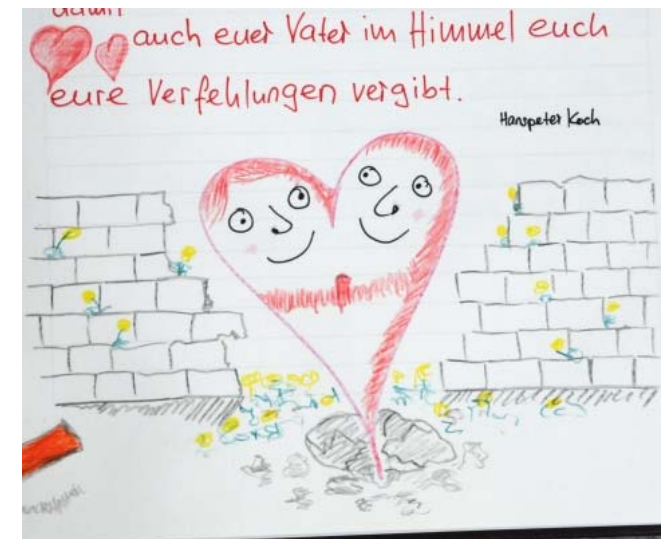 damit
auch euer Vater im Himmel euch
eure Verfehlungen vergibt.
Hanspeter Koch